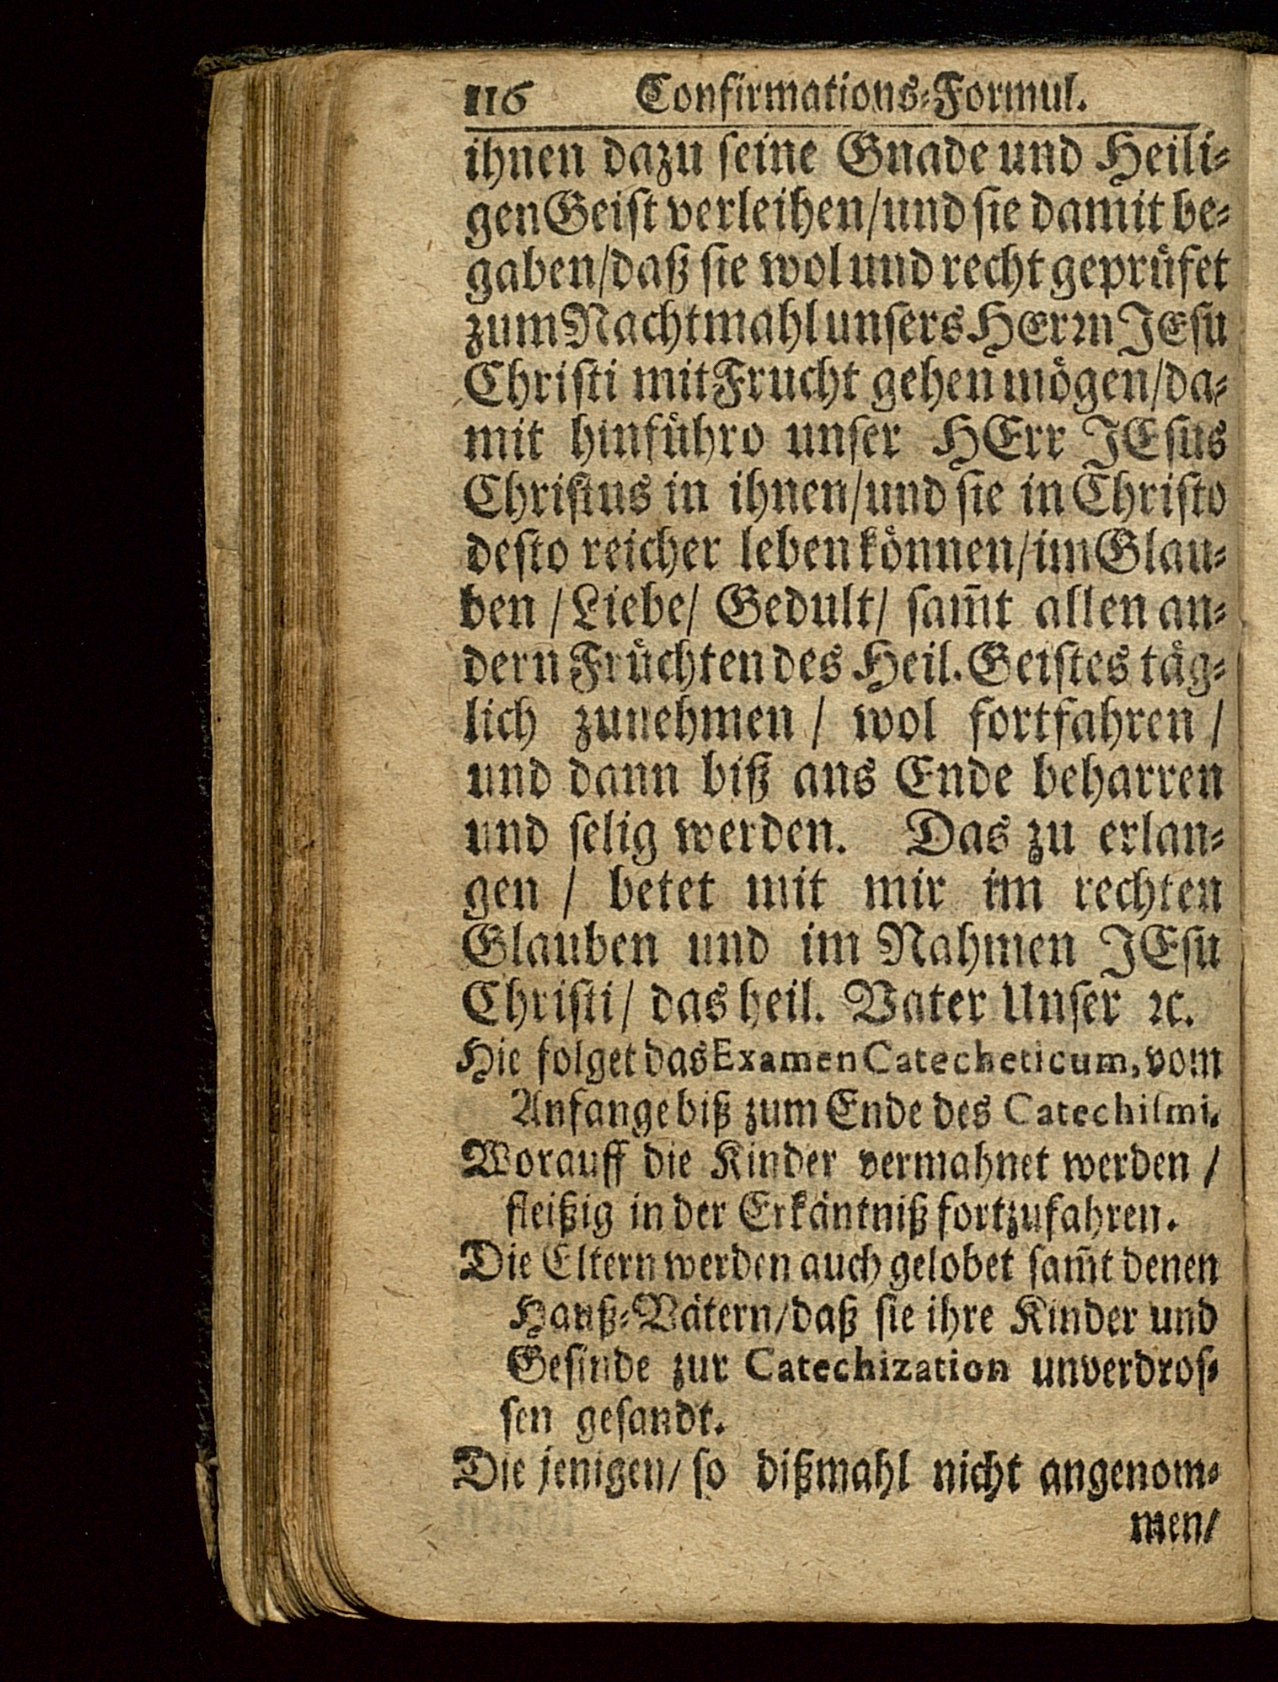 116 Confirmations-Formul.
ihnen dazu seine Gnade und Heili-
gen Geist verleihen/und sie damit be-
gaben/daß sie wol und recht geprüfet
zum Nachtmahl unsers HErrn JEsu
Christi mit Frucht gehen mögen/da-
mit hinführo unser HErr JEsus
Christus in ihnen/und sie in Christo
desto reicher leben können/im Glau-
ben / Liebe/ Gedult/ sam̃t allen an-
dern Früchten des Heil. Geistes täg-
lich zunehmen / wol fortfahren /
und dann biß ans Ende beharren
und selig werden. Das zu erlan-
gen / betet mit mir im rechten
Glauben und im Nahmen JEsu
Christi/ das heil. Vater Unser ꝛc.
Hie folget das Examen Catecheticum, vom
Anfange biß zum Ende des Catechismi.
Worauff die Kinder vermahnet werden /
fleißig in der Erkäntniß fortzufahren.
Die Eltern werden auch gelobet sam̃t denen
Hauß-Vätern/daß sie ihre Kinder und
Gesinde zur Catechization unverdros-
sen gesandt.
Die jenigen/ so dißmahl nicht angenom-
men/